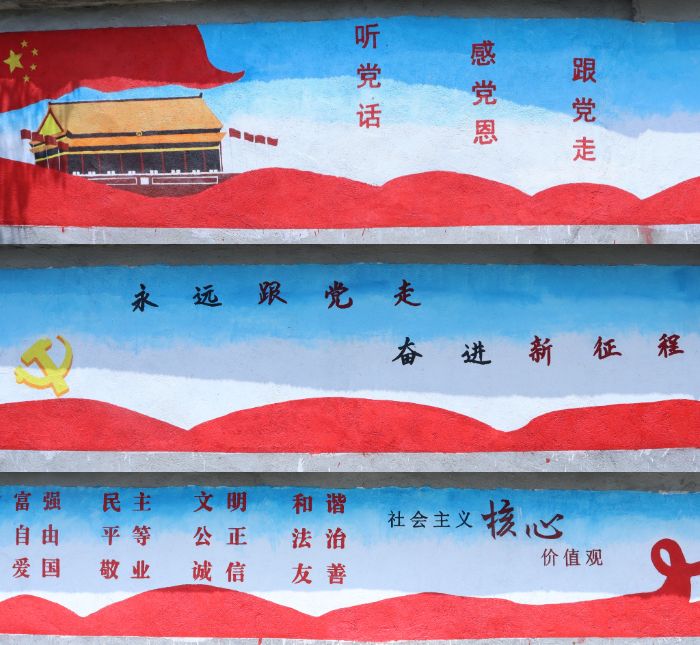 听党话
感党恩
跟党走
永远跟党走
奋进新征程
富强 民主 文明 和谐
自由 平等 公正 法治
爱国 敬业 诚信 友善
社会主义核心
价值观